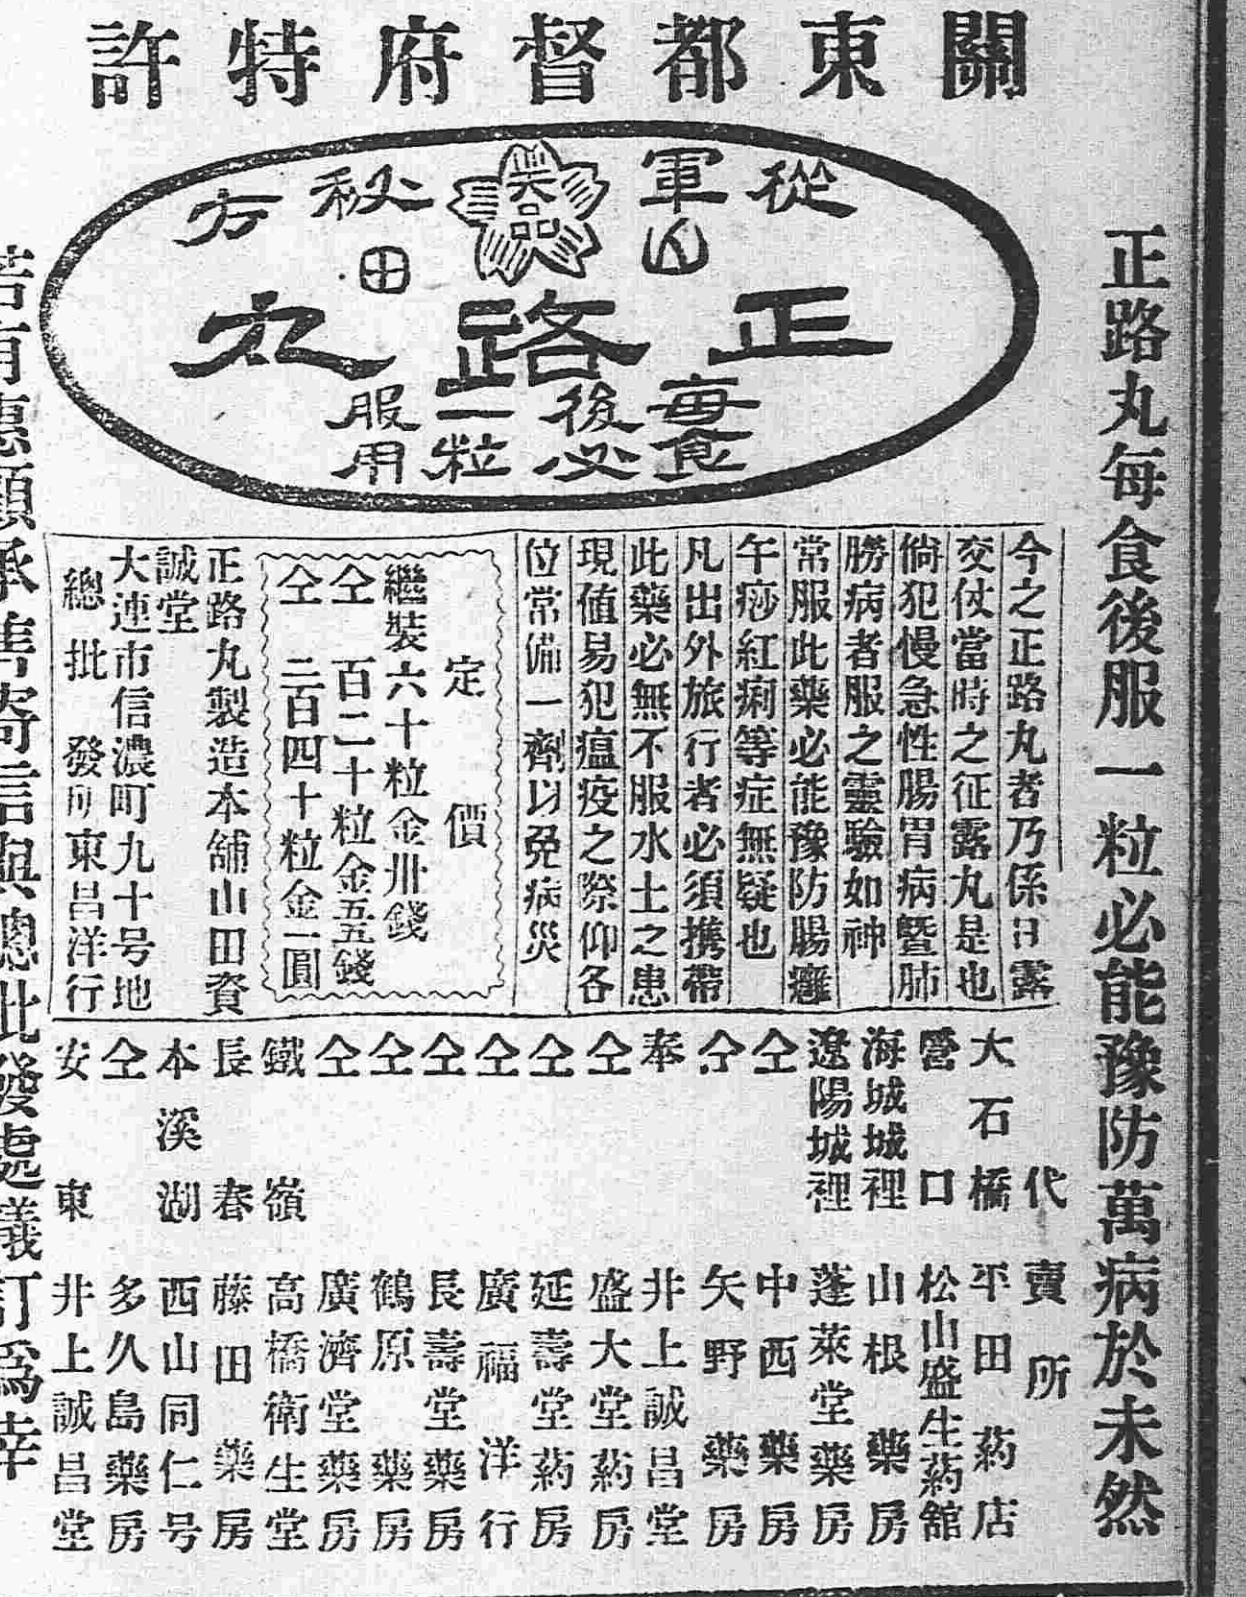 關東都督府特許
從軍秘方
正路丸
每食後必一粒服用
正路丸每食後服一粒必能豫防萬病於未然
今之正路丸者乃係日露
交仗當時之征露丸是也
倘犯慢急性腸胃病暨肺
癆病者服之靈驗如神
常服此藥必能豫防腸癰
午痧紅痢等症無疑也
凡出外旅行者必須携帶
此藥必無不服水土之患
現値易犯瘟疫之際仰各
位常備一劑以免病災
定價
繼裝六十粒金卅錢
仝 百二十粒金五五錢
仝 二百四十粒金一圓
正路丸製造本舗山田資
誠堂
大連市信濃町九十号地
總批發所東昌洋行
代賣所
大石橋 平田葯店
營口 松山盛生葯舘
海城城裡 山根藥房
遼陽城裡 蓬萊堂藥房
仝 中西藥房
仝 矢野藥房
奉 井上誠昌堂
仝 盛大堂葯房
仝 延壽堂葯房
仝 廣福洋行
仝 長壽堂藥房
仝 鶴原藥房
仝 廣濟堂藥房
鐵嶺 高橋衛生堂
長春 藤田藥房
本溪湖 西山同仁号
仝 多久島藥房
安東 井上誠昌堂
若有惠顧承售寄信與總批發處議訂爲幸